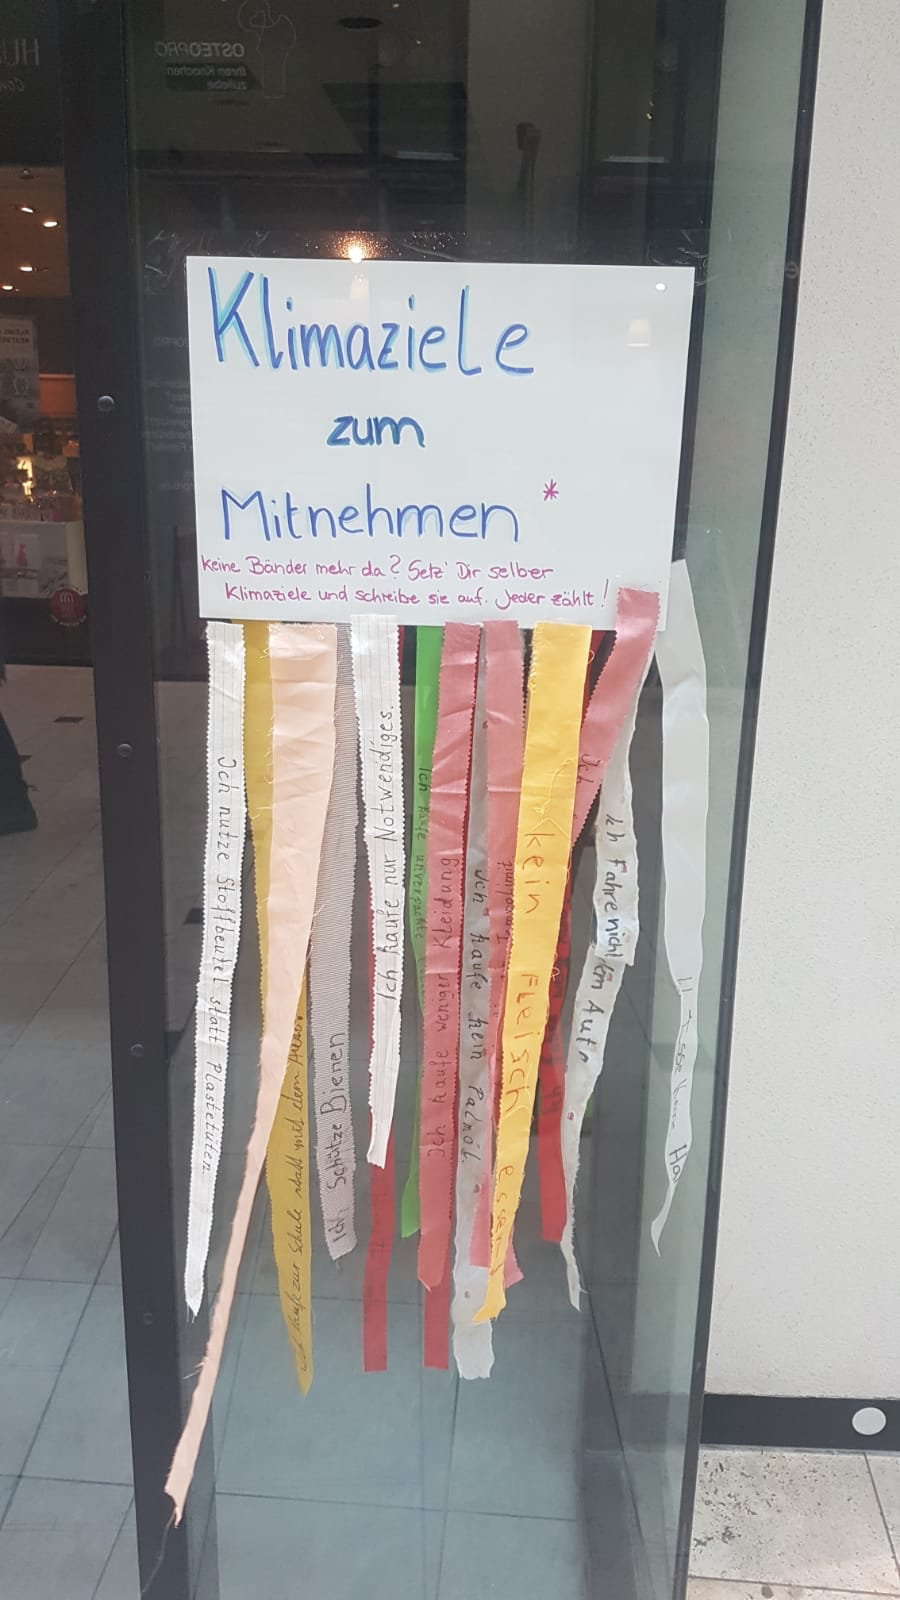 Klimaziele
zum
Mitnehmen *
Keine Bänder mehr da? Setz' Dir selber
Klimaziele und schreibe sie auf. Jeder zählt!
Ich nutze Stoffbeutel statt Plastetüten.
Ich laufe zur Schule statt mit dem Auto.
Ich schütze Bienen
Ich kaufe nur Notwendiges.
Ich kaufe unverpackte
Ich kaufe weniger Kleidung
Ich kaufe kein Palmöl.
kein Fleisch essen!
Ich
Ich fahre nicht
Auto
OSTEOPRO
Ihrem Knochen
zuliebe